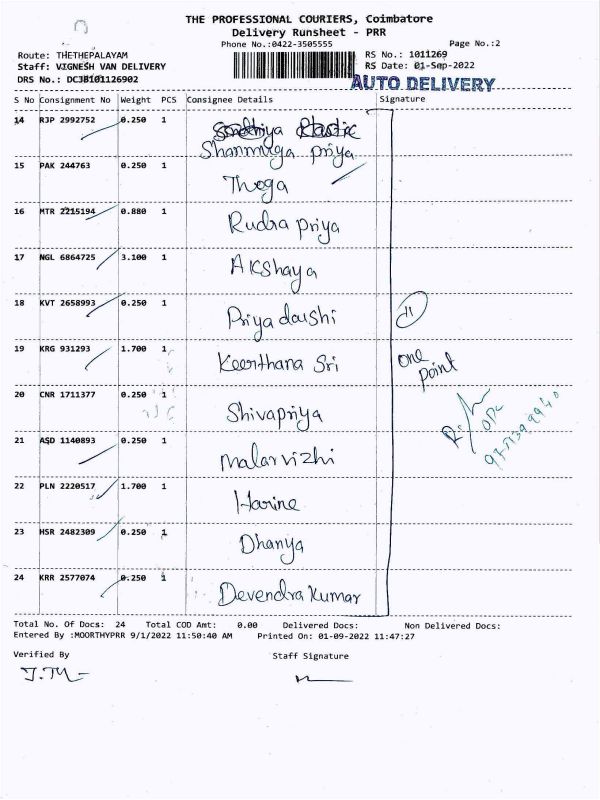 THE PROFESSIONAL COURIERS, Coimbatore
Delivery Runsheet - PRR
Phone No.:0422-3505555 Page No.:2
Route: THETHEPALAYAM RS No.: 1011269
Staff: VIGNESH VAN DELIVERY RS Date: 01-Sep-2022
DRS No.: DCJB101126902
AUTO DELIVERY
S No Consignment No Weight PCS Consignee Details Signature
14 RJP 2992752 0.250 1
Shanmuga priya
15 PAK 244763 0.250 1 Thoga
16 MTR 2215194 0.880 1 Rudra priya
17 NGL 6864725 3.100 1 Akshaya
18 KVT 2658993 0.250 1 Priya darshi 11
19 KRG 931293 1.700 1 Keerthana Sri one point
20 CNR 1711377 0.250 1 Shivapriya
21 ASD 1140893 0.250 1 Malarvizhi
22 PLN 2220517 1.700 1 Harine
23 HSR 2482309 0.250 1 Dhanya
24 KRR 2577074 0.250 1 Devendra Kumar
Total No. Of Docs: 24 Total COD Amt: 0.00 Delivered Docs: Non Delivered Docs:
Entered By :MOORTHYPRR 9/1/2022 11:50:40 AM Printed On: 01-09-2022 11:47:27
Verified By Staff Signature